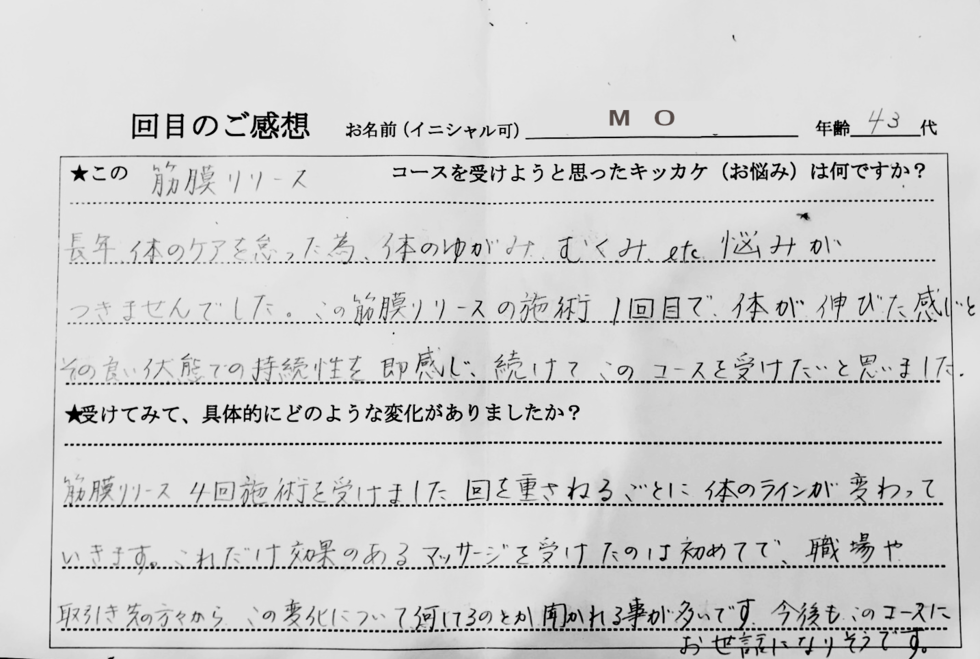 回目のご感想 お名前(イニシャル可) M O 年齢 43 代
★この 筋膜リリース コースを受けようと思ったキッカケ（お悩み）は何ですか？
長年 体のケアを怠った為、体のゆがみ、むくみ、etc 悩みが
つきませんでした。この筋膜リリースの施術 1回目で、体が伸びた感じと
その良い状態での持続性を即感じ、続けてこのコースを受けたいと思いました.
★受けてみて、具体的にどのような変化がありましたか？
筋膜リリース 4回施術を受けました 回を重さねるごとに体のラインが変わって
いきます。これだけ効果のあるマッサージを受けたのは初めてで、職場や
取引き先の方々から この変化について何してるのとか聞かれる事が多いです 今後もこのコースに
お世話になりそうです。